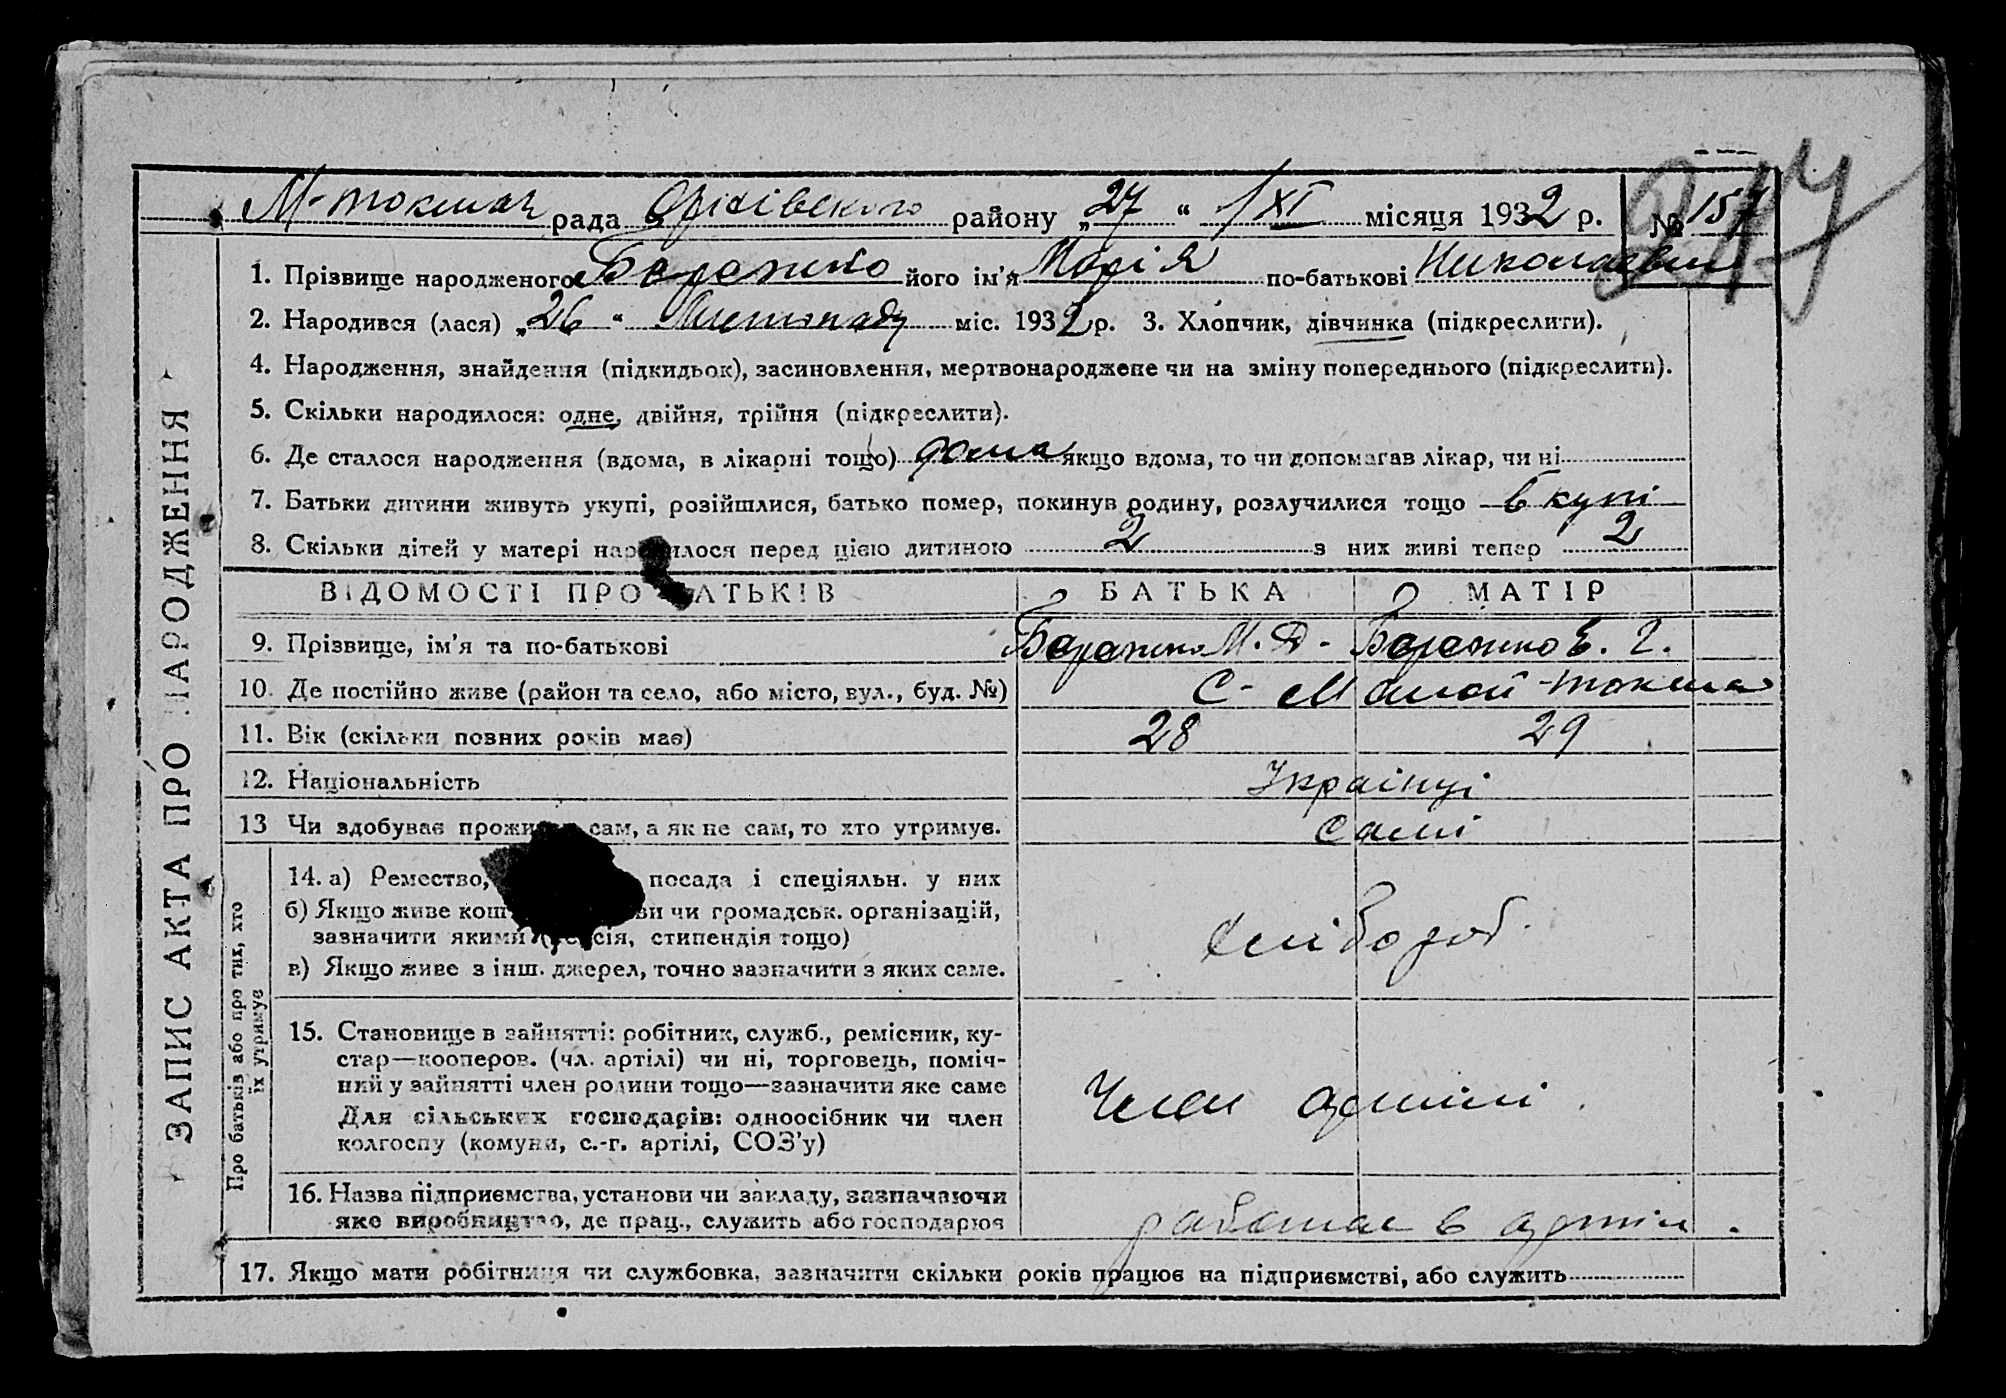 М-токмач рада Оріхівського району „27“ /XI місяця 1932 р. № 157
247
ЗАПИС АКТА ПРО НАРОДЖЕННЯ
1. Прізвище народженого його ім'я Марія по-батькові Николаевна
2. Народився (лася) „26“ Листопаду міс. 1932 р. 3. Хлопчик, дівчинка (підкреслити).
4. Народження, знайдення (підкидьок), засиновлення, мертвонароджене чи на зміну попереднього (підкреслити).
5. Скільки народилося: одне, двійня, трійня (підкреслити).
6. Де сталося народження (вдома, в лікарні тощо) дома якщо вдома, то чи допомагав лікар, чи ні
7. Батьки дитини живуть укупі, розійшлися, батько помер, покинув родину, розлучилися тощо вкупі
8. Скільки дітей у матері народилося перед цією дитиною 2 з них живі тепер 2
ВІДОМОСТІ ПРО БАТЬКІВ БАТЬКА МАТІР
9. Прізвище, ім'я та по-батькові М. Д. Е. Г.
10. Де постійно живе (район та село, або місто, вул., буд. №) С- Малой-токма
11. Вік (скільки повних років має) 28 29
12. Національність Українці
13 Чи здобуває прожиток сам, а як не сам, то хто утримує. Самі
Про батьків або про тих, хто
їх утримує
14. а) Ремество, посада і спеціяльн. у них
б) Якщо живе кошт ви чи громадськ. організацій,
зазначити якими (пенсія, стипендія тощо)
в) Якщо живе з інш. джерел, точно зазначити з яких саме.
хлібороб.
15. Становище в зайнятті: робітник, служб., ремісник, ку-
стар—кооперов. (чл. артілі) чи ні, торговець, поміч-
ний у зайнятті член родини тощо—зазначити яке саме
Для сільських господарів: одноосібник чи член
колгоспу (комуни, с.-г. артілі, СОЗ'у)
Член артілі.
16. Назва підприємства, установи чи закладу, зазначаючи
яке виробництво, де прац., служить або господарює
в артіл.
17. Якщо мати робітниця чи службовка, зазначити скільки років працює на підприємстві, або служить